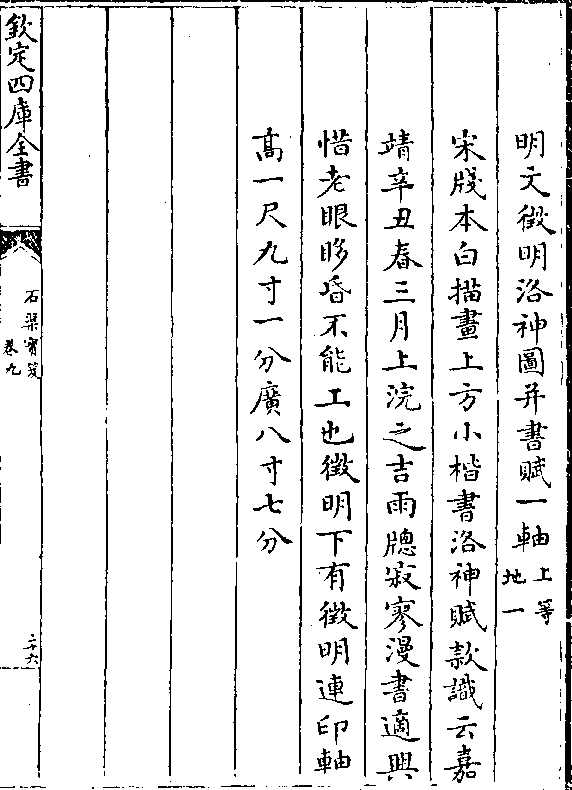 明文徵明洛神圖并書賦一軸上等
地一
宋牋本白描畫上方小楷書洛神賦款識云嘉
靖辛丑春三月上浣之吉雨牕寂寥漫書適興
惜老眼眵昏不能工也徵明下有徵明連印軸
高一尺九寸一分廣八寸七分
欽定四庫全書
石渠寶笈
卷九
二十六